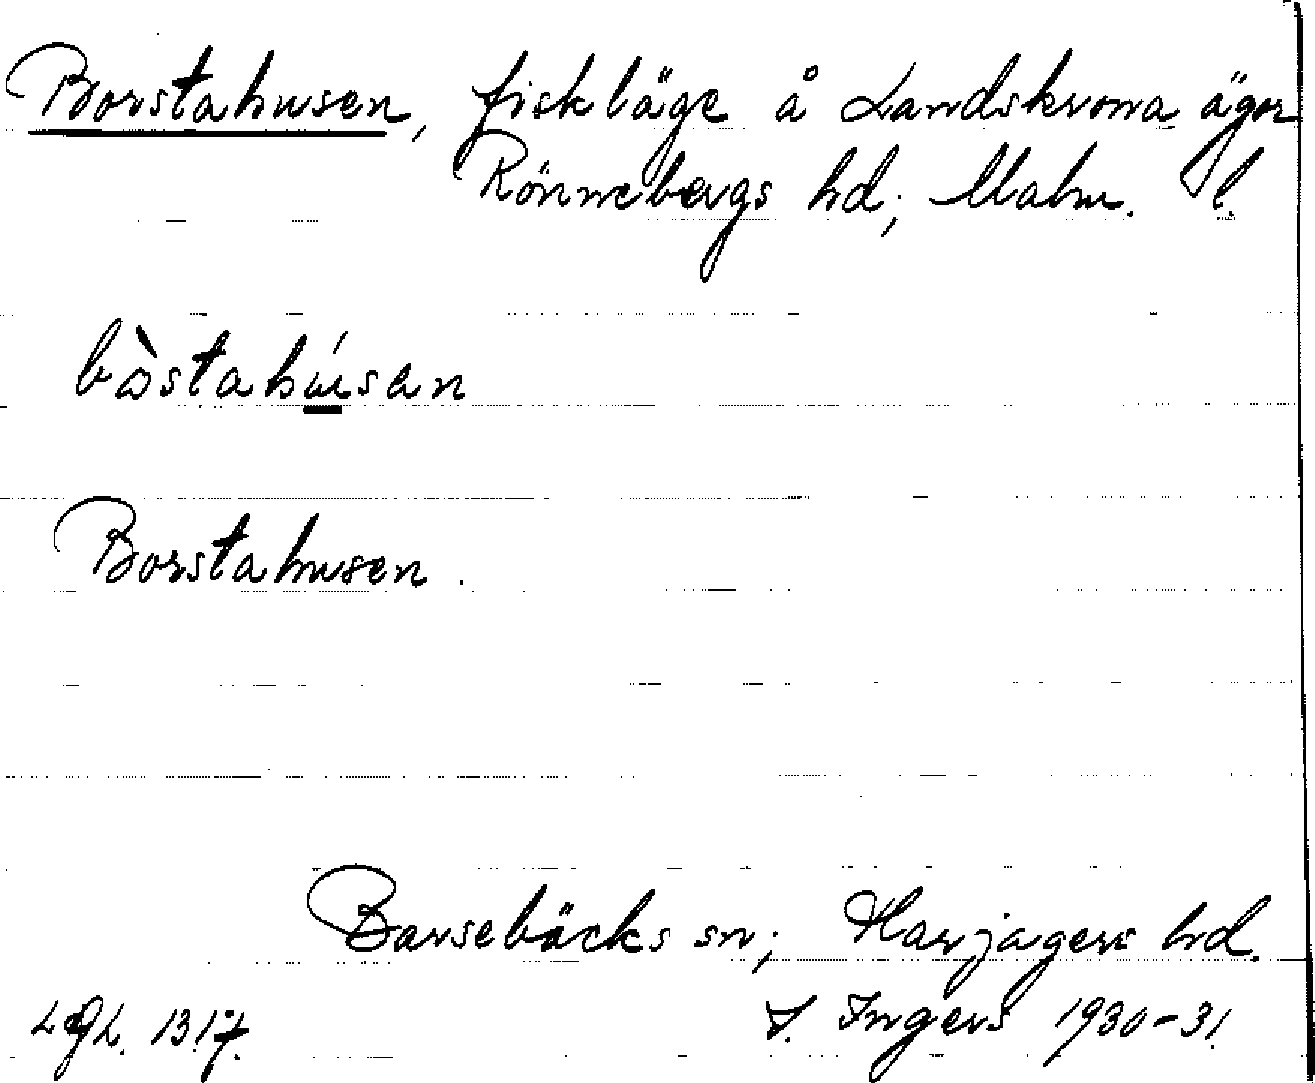 Borstahusen, fiskläge å Landskrona ägor
Rönnebergs hd; Malm. l.
bòstahúsan
Borstahusen.
Barsebäcks sn; Harjagers hd.
LGL. 1317. I. Ingers 1930-31.